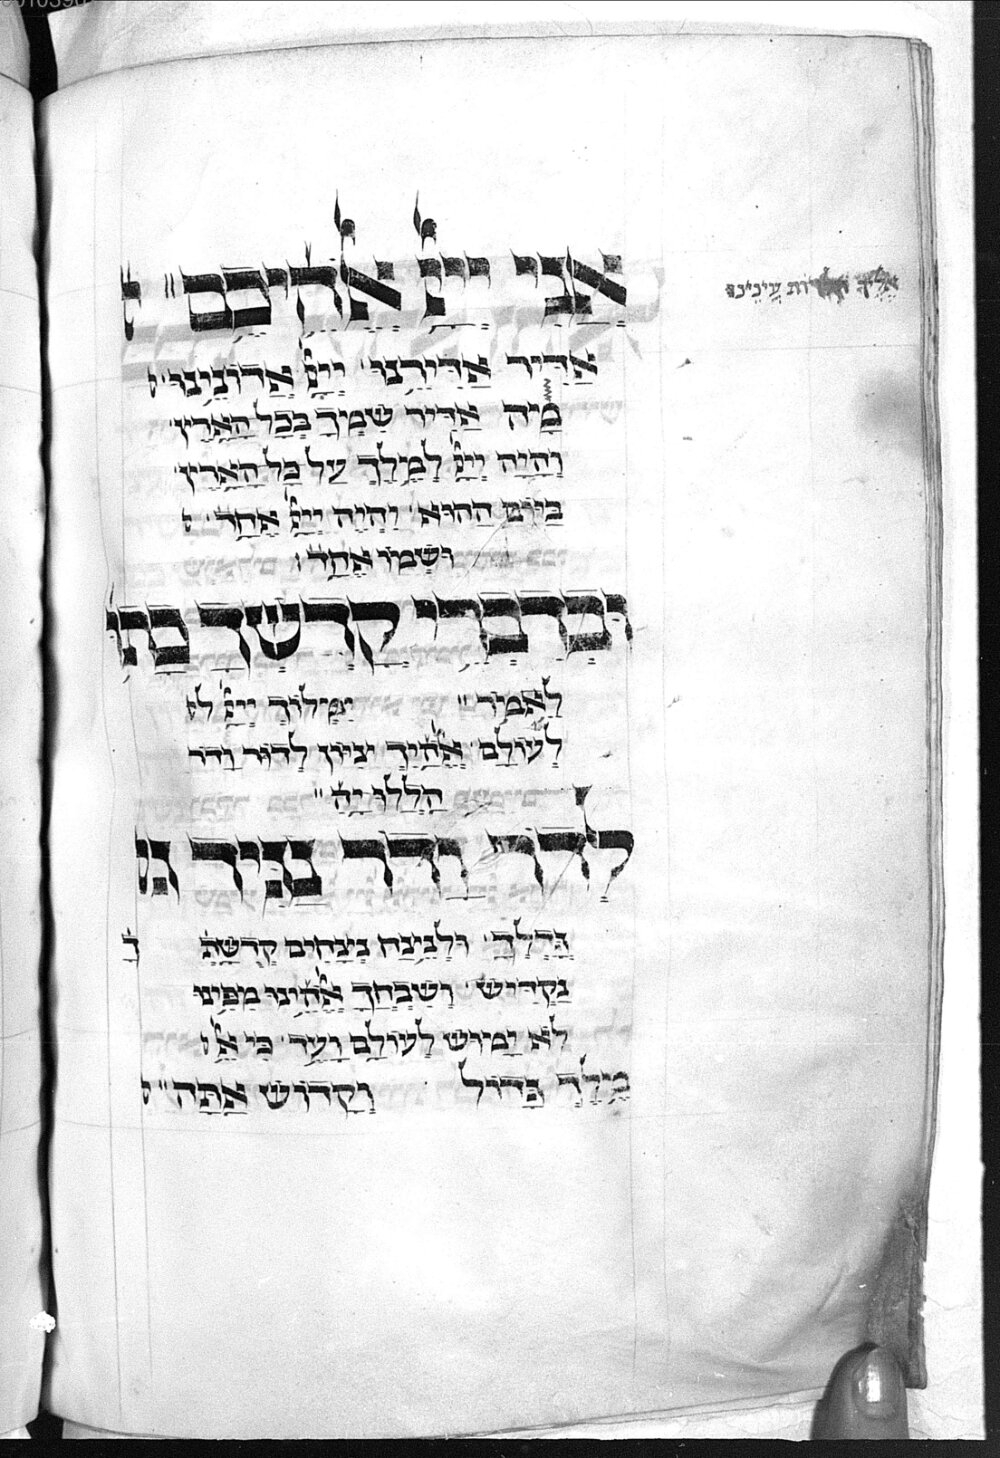 אֲנִי יְיָ אֱלֹהֵיכֶם״
אַדִּיר אַדִּירֵנוּ יְיָ אֲדוֹנֵינוּ
מָה אַדִּיר שִׁמְךָ בְּכָל הָאָרֶץ
וְהָיָה יְיָ לְמֶלֶךְ עַל כָּל הָאָרֶץ
בַּיּוֹם הַהוּא יִהְיֶה יְיָ אֶחָד
וּשְׁמוֹ אֶחָד׃
וּבְדִבְרֵי קָדְשְׁךָ כתו
לֵאמֹר״ יִמְלוֹךְ יְיָ ל
לְעוֹלָם אֱלֹהַיִךְ צִיּוֹן לְדוֹר וָדֹר
הַלְלוּ יָהּ״
לְדֹר וָדֹר נַגִּיד ג
גָּדְלֶךָ וּלְנֵיצַח נְצָחִים קְדֻשָּׁתְ
נַקְדִּישׁ וְשִׁבְחֲךָ אֱלֹהֵינוּ מִפִּינוּ
לֹא יָמוּשׁ לְעוֹלָם וָעֶד כִּי אֵל
מֶלֶךְ גָּדוֹל וְקָדוֹשׁ אַתָּה״
אֵלֶיךָ תלויות עֵינֵינוּ